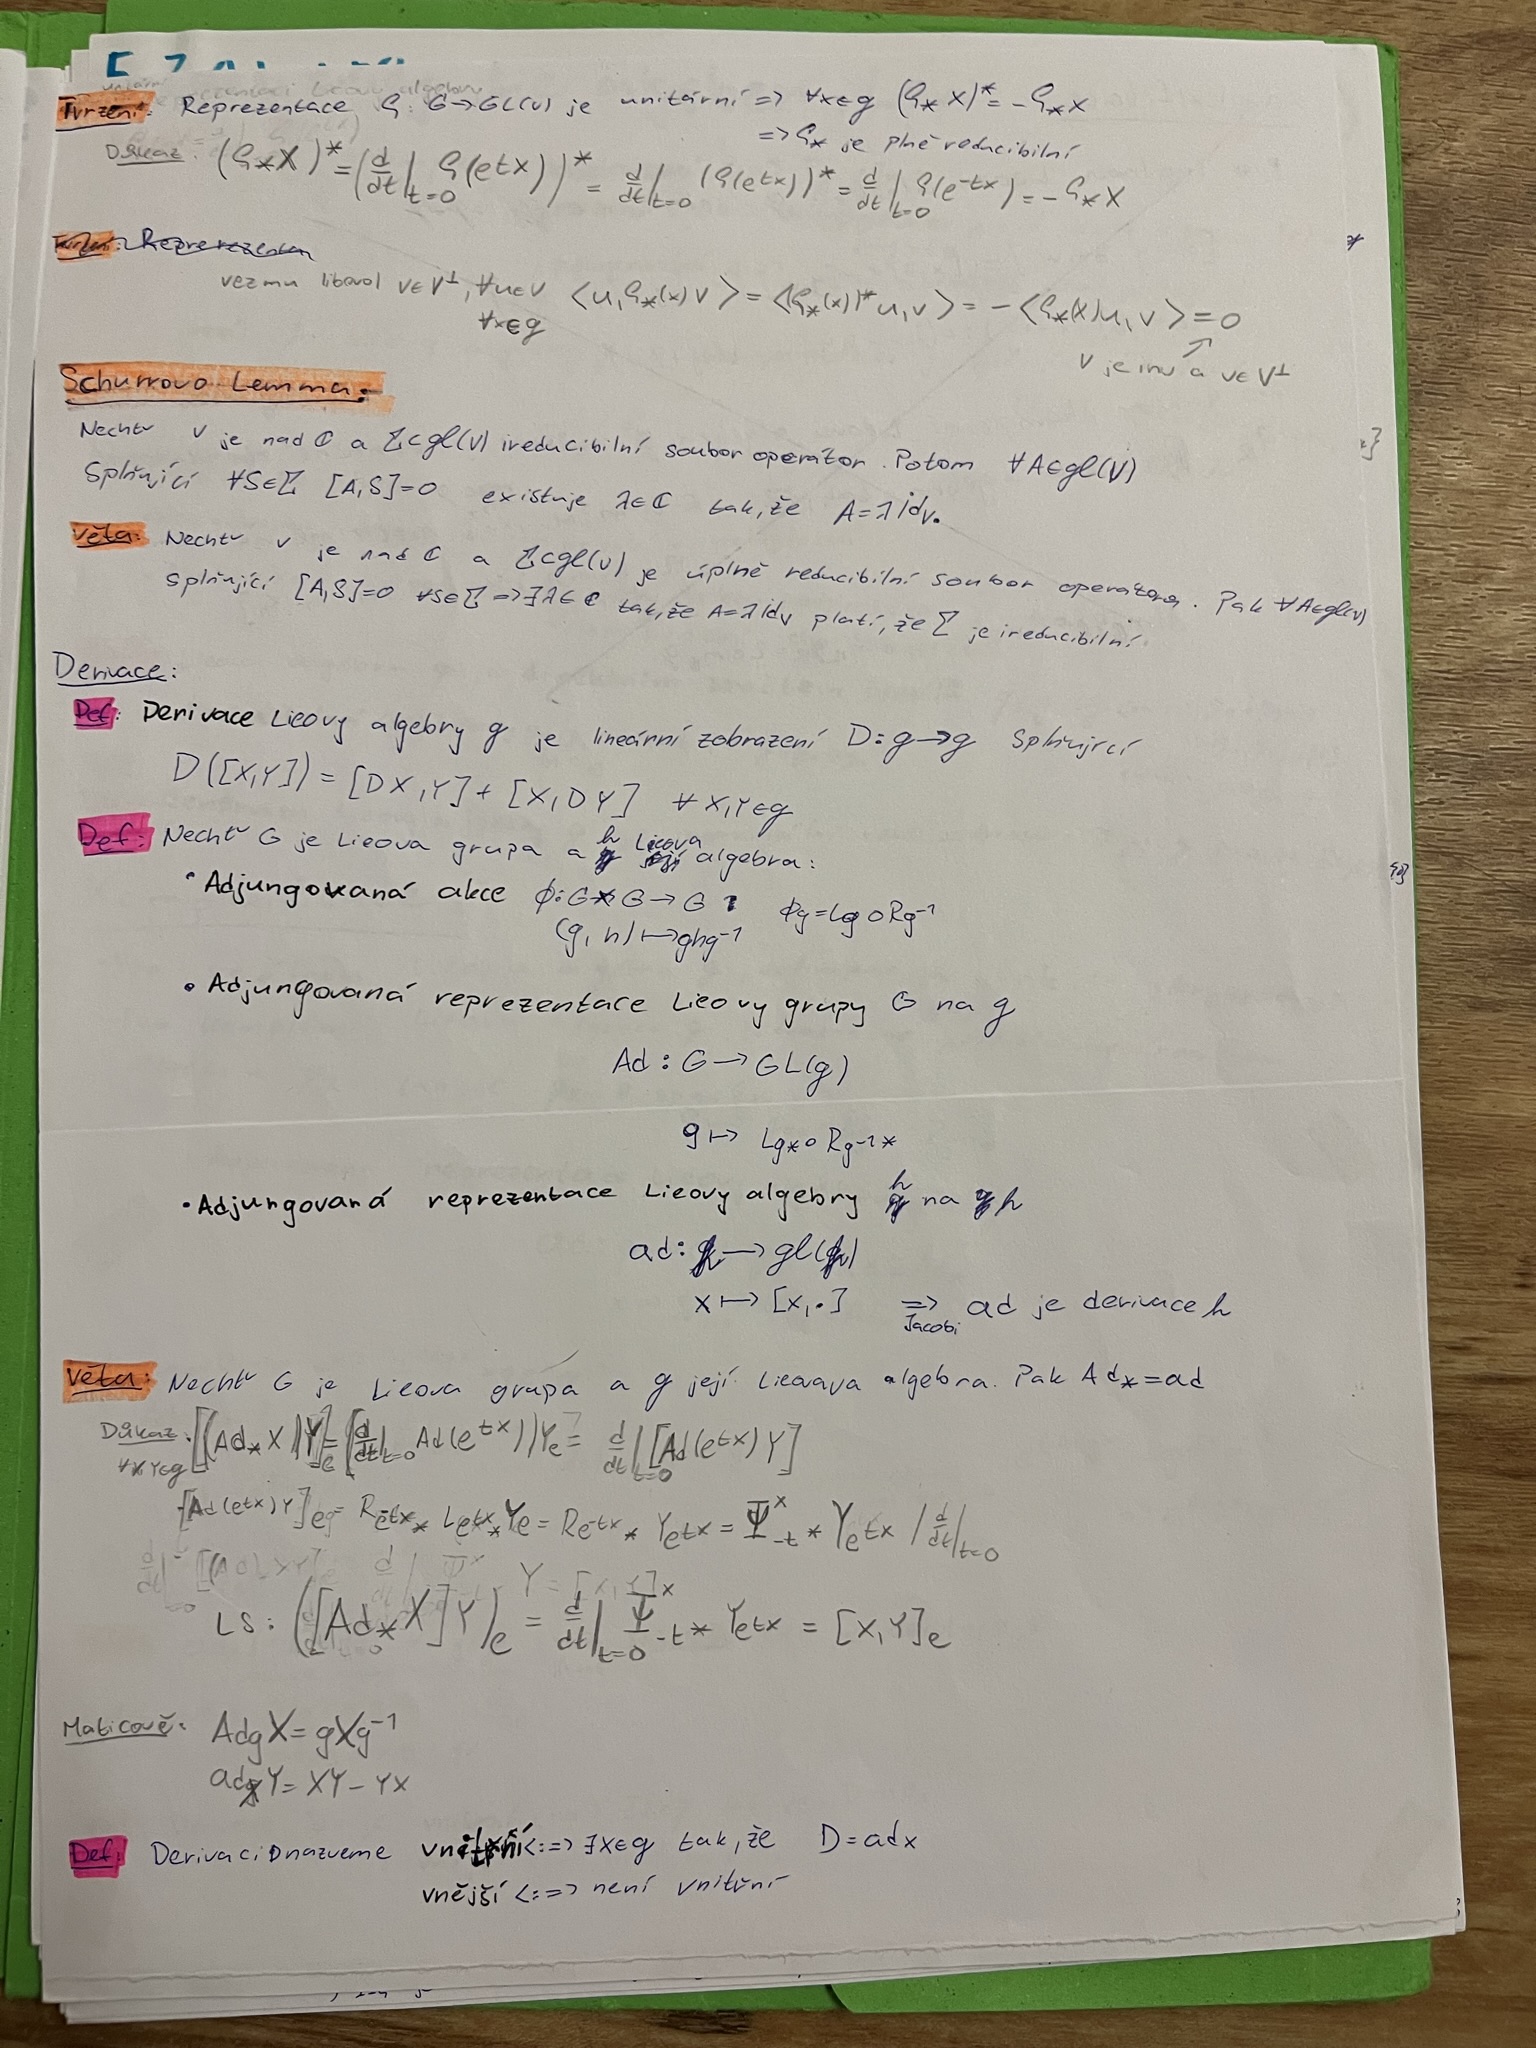 Tvrzení: Reprezentace ρ: G→GL(V) je unitární => ∀x∈g (ρ* X)* = -ρ* X
=> ρ* je plně reducibilní
Důkaz: (ρ* X)* = (d/dt|t=0 ρ(e^tx))* = d/dt|t=0 (ρ(e^tx))* = d/dt|t=0 ρ(e^-tx) = -ρ* X
Tvrzení: Reprezenta
vezmu libovol v∈V^⊥, ∀u∈V ⟨u, ρ*(x) v⟩ = ⟨ρ*(x))* u, v⟩ = -⟨ρ*(x)u, v⟩ = 0
∀x∈g
V je inv a v∈V^⊥
Schurrovo Lemma:
Nechť V je nad ℂ a Σ⊂gl(V) ireducibilní soubor operátor. Potom ∀A∈gl(V)
Splňující ∀S∈Σ [A,S]=0 existuje λ∈ℂ tak, že A=λ id_V.
Věta: Nechť V je nad ℂ a Σ⊂gl(V) je úplně reducibilní soubor operátorů. Pak ∀A∈gl(V)
Splňující [A,S]=0 ∀S∈Σ => ∃λ∈ℂ tak, že A=λ id_V platí, že Σ je ireducibilní
Derivace:
Def: Derivace Lieovy algebry g je lineární zobrazení D: g→g Splňující
D([X,Y]) = [DX,Y] + [X,DY] ∀X,Y∈g
Def: Nechť G je Lieova grupa a h Lieova algebra:
• Adjungovaná akce ϕ: G×G→G : ϕg = Lg∘Rg⁻¹
(g,h)↦ghg⁻¹
• Adjungovaná reprezentace Lieovy grupy G na g
Ad: G→GL(g)
g↦ Lg*∘Rg⁻¹*
• Adjungovaná reprezentace Lieovy algebry h na h
ad: h→gl(h)
x↦[x,•] => Jacobi ad je derivace h
Věta: Nechť G je Lieova grupa a g její Lieavava algebra. Pak Ad* = ad
Důkaz: [(Ad* X)Y]e = [d/dt|t=0 Ad(e^tx)]Ye = d/dt|t=0 [Ad(e^tx)Y]
∀X,Y∈g
[Ad(e^tx)Y]e = Re^-tx* Le^tx* Ye = Re^-tx* Ye^tx = Ψ^x_-t* Ye^tx /d/dt|t=0
LS: ([Ad* X]Y)e = d/dt|t=0 Ψ^x_-t* Ye^tx = [X,Y]e
Maticově: Adg X = gXg⁻¹
adx Y = XY - YX
Def: Derivaci D nazveme vnitřní <:=> ∃x∈g tak, že D = adx
vnější <:=> není vnitřní